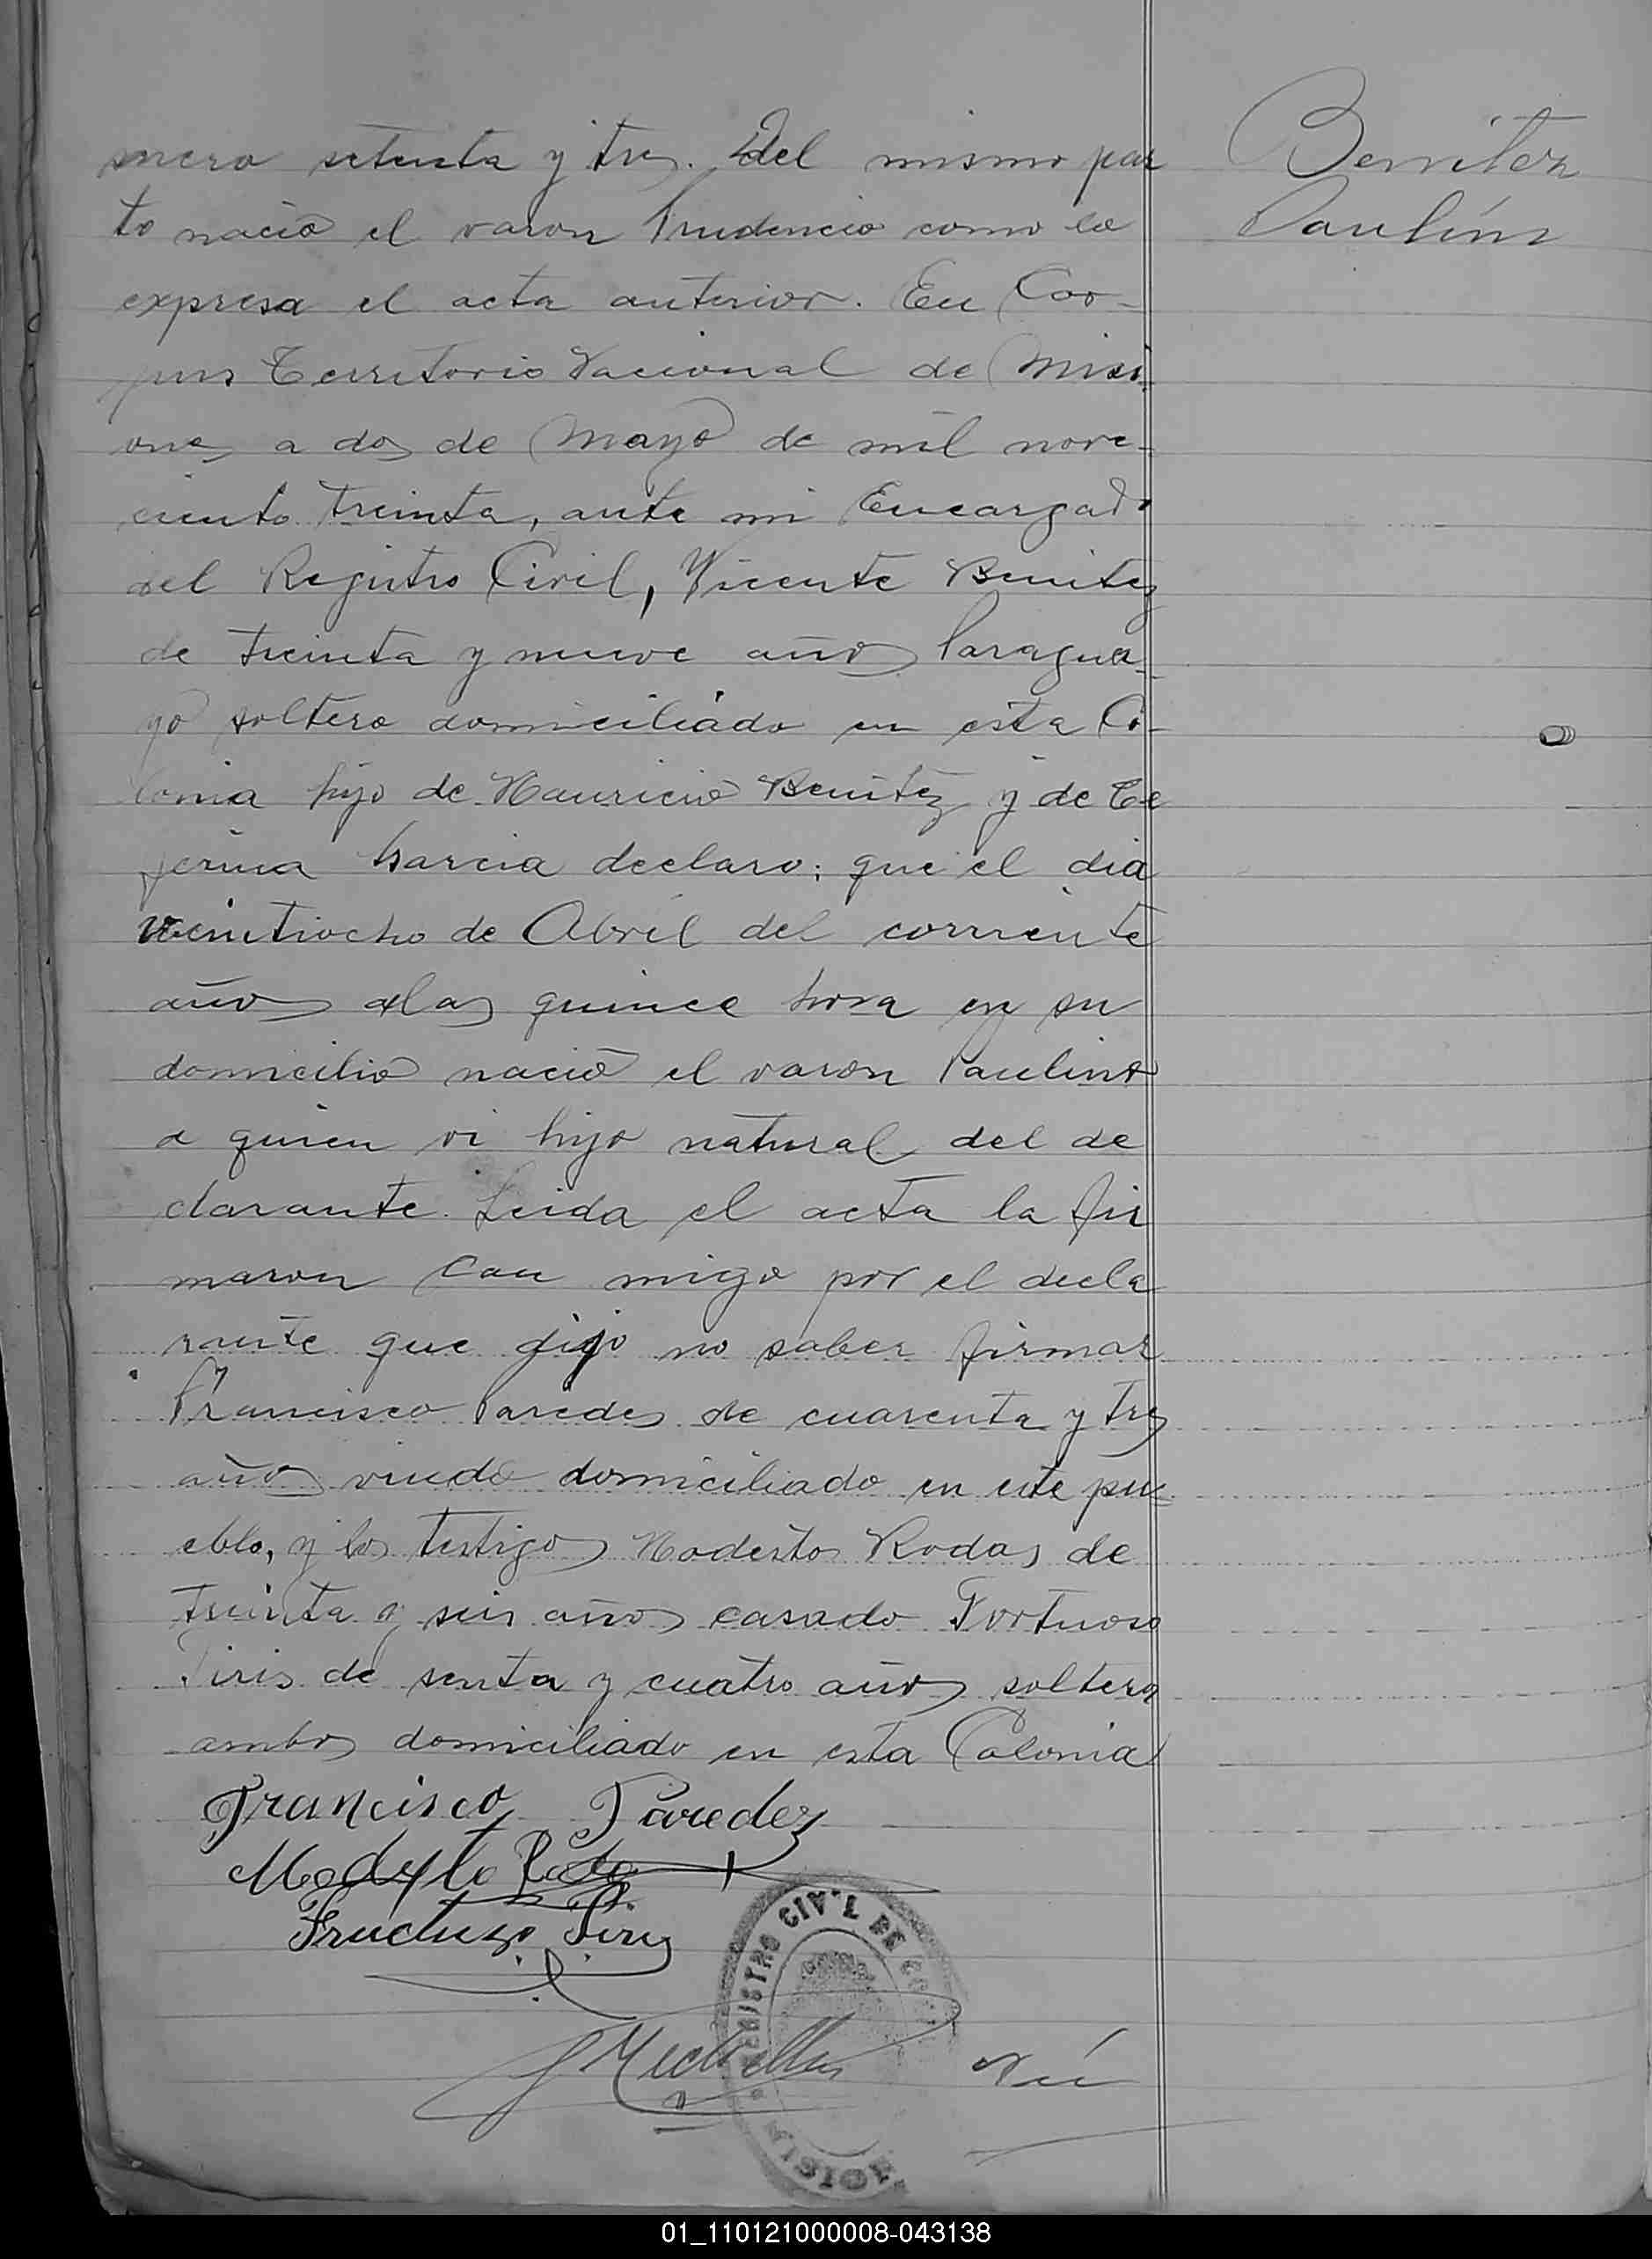 mero setenta y tres. Del mismo par
to nació el varon Prudencio como lo
expresa el acta anterior. En Cor-
pus Territorio Nacional de Misi
ones a dos de Mayo de mil nove-
ciento treinta, ante mi Encargado
del Registro Civil, Vicente Benitez
de treinta y nueve años Paragua-
yo soltero domiciliado en esta Co-
lonia hijo de Mauricio Benitez y de Ce
ferina Garcia declaro: que el dia
veintiocho de Abril del corriente
años alas quince hora en su
domicilio nació el varon Paulino
a quien vi hijo natural del de
clarante. Leida el acta la fir
maron con migo por el decla
rante que dijo no saber firmar
Francisco Paredes de cuarenta y tres
años viudo domiciliado en este pu-
eblo, y los testigos Modesto Rodas de
treinta y seis años casado Fortuoso
Piris de senta y cuatro años soltero
ambos domiciliado en esta Colonia
Francisco Paredez
Modesto Roda
Fructuzo Piris
REGISTRO CIVIL DE
Benitez
Paulino
01_110121000008-043138